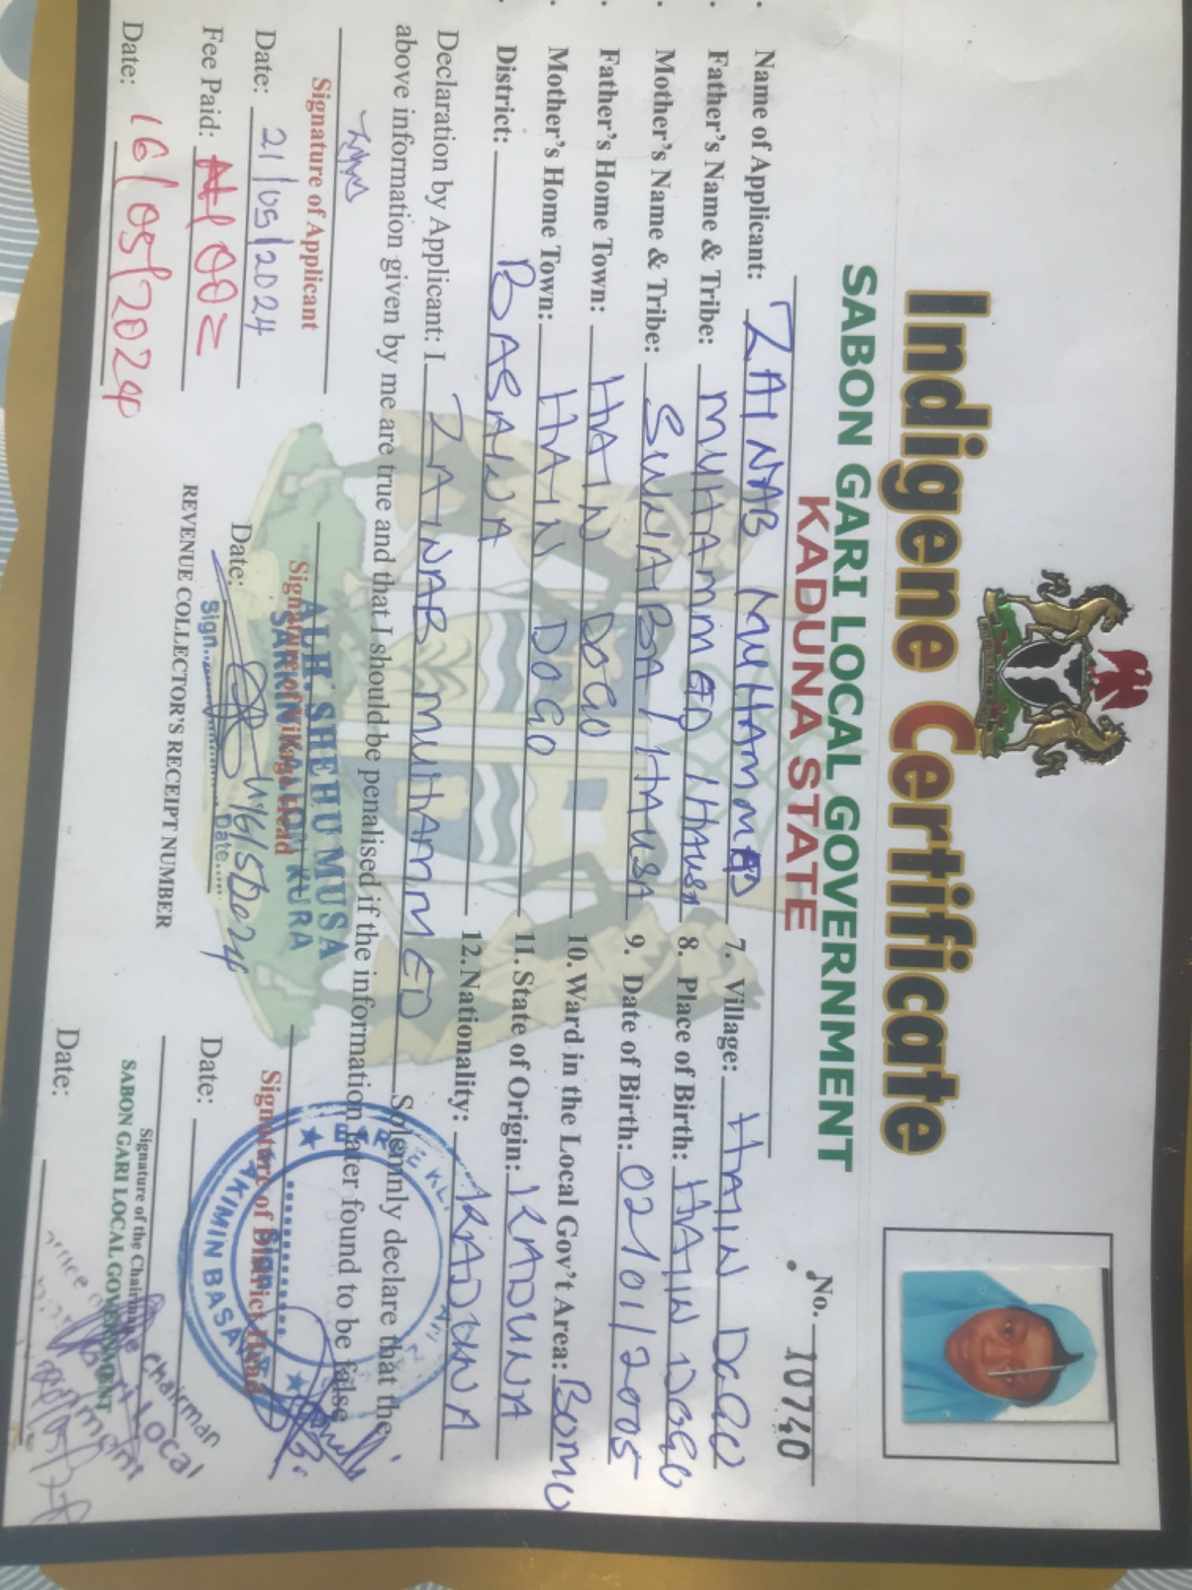 Indigene Certificate
SABON GARI LOCAL GOVERNMENT
KADUNA STATE
No. 10740
Name of Applicant: ZAINAB MUHAMMED
Father's Name & Tribe: MUHAMMED / HAUSA
Mother's Name & Tribe: SUWAIBA / HAUSA
Father's Home Town: HAIN DOGO
Mother's Home Town: HAIN DOGO
District: BASAWA
7. Village: HAIN DOGO
8. Place of Birth: HAIN DOGO
9. Date of Birth: 02/01/2005
10. Ward in the Local Gov't Area: BOMO
11. State of Origin: KADUNA
12. Nationality: KADUNA
Declaration by Applicant: I ZAINAB MUHAMMED Solemnly declare that the
above information given by me are true and that I should be penalised if the information later found to be false
Signature of Applicant
Date: 21/05/2024
Fee Paid: ₦100=
Date: 16/05/2024
ALH. SHEHU MUSA
Signature of Village Head
Date:
Sign. Date
REVENUE COLLECTOR'S RECEIPT NUMBER
Signature of District Head
HAKIMIN BASAWA
Sign
Date:
Signature of the Chairman
SABON GARI LOCAL GOVERNMENT
Office of the Chairman
Local
Date: